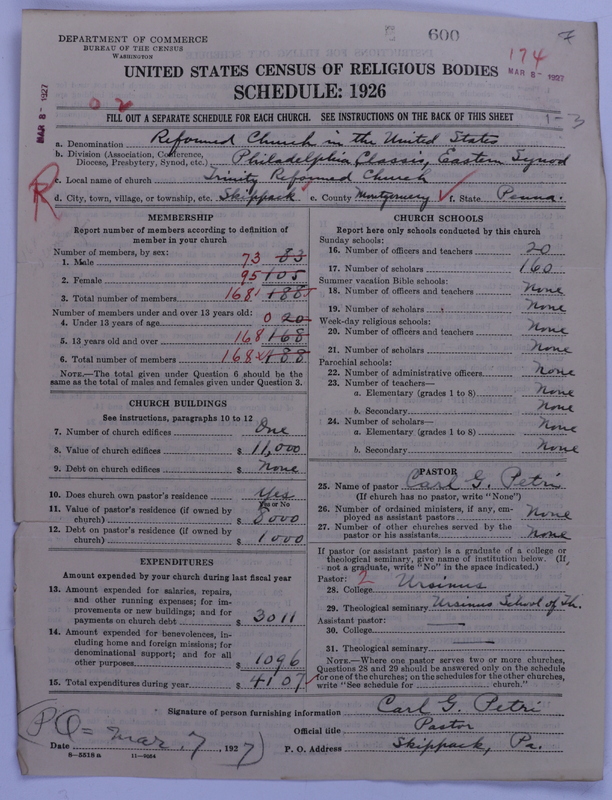 DEPARTMENT OF COMMERCE
BUREAU OF THE CENSUS
WASHINGTON
600
174
MAR 8- 1927
MAR 8- 1927
UNITED STATES CENSUS OF RELIGIOUS BODIES
SCHEDULE: 1926
0 2
FILL OUT A SEPARATE SCHEDULE FOR EACH CHURCH. SEE INSTRUCTIONS ON THE BACK OF THIS SHEET
1-3
a. Denomination Reformed Church in the United States
b. Division (Association, Conference, Diocese, Presbytery, Synod, etc.) Philadelphia Classis, Eastern Synod
R
c. Local name of church Trinity Reformed Church
d. City, town, village, or township, etc. Skippack e. County Montgomery f. State Penna.
MEMBERSHIP
Report number of members according to definition of member in your church
Number of members, by sex:
1. Male 73 83
2. Female 95 105
3. Total number of members 168 188
Number of members under and over 13 years old:
4. Under 13 years of age 0 20
5. 13 years old and over 168 168
6. Total number of members 168 188
NOTE.—The total given under Question 6 should be the same as the total of males and females given under Question 3.
CHURCH BUILDINGS
See instructions, paragraphs 10 to 12
7. Number of church edifices One
8. Value of church edifices $ 11,000
9. Debt on church edifices $ None
10. Does church own pastor's residence Yes
Yes or No
11. Value of pastor's residence (if owned by church) $ 8000
12. Debt on pastor's residence (if owned by church) $ 1000
EXPENDITURES
Amount expended by your church during last fiscal year
13. Amount expended for salaries, repairs, and other running expenses; for improvements or new buildings; and for payments on church debt $ 3011
14. Amount expended for benevolences, including home and foreign missions; for denominational support; and for all other purposes $ 1096
15. Total expenditures during year $ 4107
CHURCH SCHOOLS
Report here only schools conducted by this church
Sunday schools:
16. Number of officers and teachers 20
17. Number of scholars 160
Summer vacation Bible schools:
18. Number of officers and teachers None
19. Number of scholars None
Week-day religious schools:
20. Number of officers and teachers None
21. Number of scholars None
Parochial schools:
22. Number of administrative officers None
23. Number of teachers—
a. Elementary (grades 1 to 8) None
b. Secondary None
24. Number of scholars—
a. Elementary (grades 1 to 8) None
b. Secondary None
PASTOR
25. Name of pastor Carl G. Petri
(If church has no pastor, write "None")
26. Number of ordained ministers, if any, employed as assistant pastors None
27. Number of other churches served by the pastor or his assistants None
If pastor (or assistant pastor) is a graduate of a college or theological seminary, give name of institution below. (If not a graduate, write "No" in the space indicated.)
Pastor: 2
28. College Ursinus
29. Theological seminary Ursinus School of Th.
Assistant pastor:
30. College
31. Theological seminary
NOTE.—Where one pastor serves two or more churches, Questions 28 and 29 should be answered only on the schedule for one of the churches; on the schedules for the other churches, write "See schedule for church."
Signature of person furnishing information Carl G. Petri
Official title Pastor
(PO= Date Mar. 7, 1927)
P. O. Address Skippack, Pa.
8—5518 a 11—9084